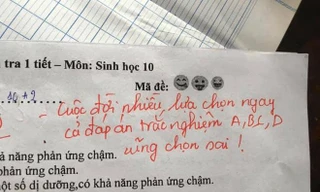 tra 1 tiết – Môn: Sinh học 10
Mã đề:
- Cuộc đời nhiều lựa chọn ngay
cả đáp án trắc nghiệm A, B, C, D
cũng chọn sai !
ả năng phản ứng chậm.
phản ứng chậm.
ột số dị dưỡng,có khả năng phản ứng chậm.